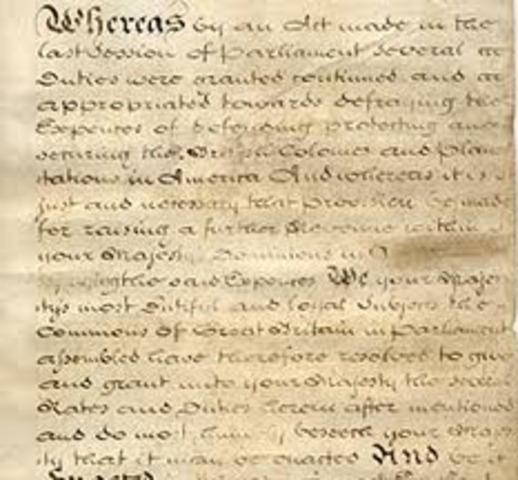 Whereas by an Act made in the
last Session of Parliament several
Duties were granted continued and
appropriated towards defraying the
Expences of defending protecting and
securing the British Colonies and Plan
tations in America And whereas it is
just and necessary that provision be made
for raising a further Revenue within
your Majesty Dominions in
the said Expences We your Majes
tys most Dutiful and loyal Subjects the
Commons of Great Britain in Parliament
assembled have therefore resolved to give
and grant unto your Majesty the several
Rates and Duties herein after mentioned
and do most humbly beseech your Majes
ty that it may be enacted And be it
Enacted